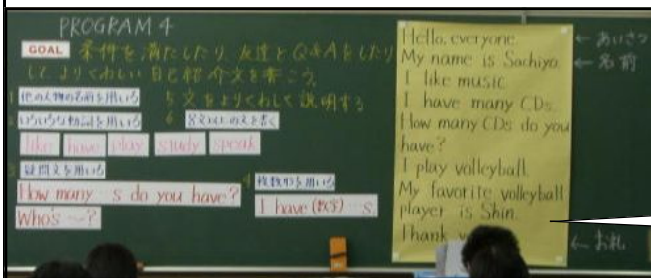 PROGRAM 4
GOAL 条件を満たしたり、友達とQ&Aをしたり
して、よりくわしい自己紹介文を書こう。
1 他の人物の名前を用いる
5 文をよりくわしく説明する
2 いろいろな動詞を用いる
6 8文以上の文を書く
like have play study speak
3 疑問文を用いる
How many …s do you have?
Who's ~?
4 複数形を用いる
I have (数字) …s.
Hello, everyone.
My name is Sachiyo.
I like music.
I have many CDs.
How many CDs do you
have?
I play volleyball.
My favorite volleyball
player is Shin.
Thank
← あいさつ
← 名前
← お礼